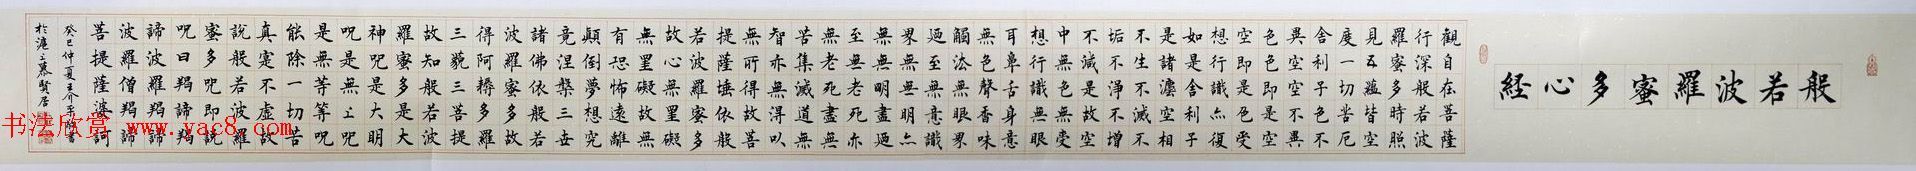 般若波羅蜜多心經
觀自在菩薩
行深般若波
羅蜜多時照
見五蘊皆空
度一切苦厄
舍利子色不
異空空不異
色色即是空
空即是色受
想行識亦復
如是舍利子
是諸法空相
不生不滅不
垢不淨不增
不減是故空
中無色無受
想行識無眼
耳鼻舌身意
無色聲香味
觸法無眼界
迺至無意識
界無無明亦
無無明盡迺
至無老死亦
無老死盡無
苦集滅道無
智亦無得以
無所得故菩
提薩埵依般
若波羅蜜多
故心無罣礙
無罣礙故無
有恐怖遠離
顛倒夢想究
竟涅槃三世
諸佛依般若
波羅蜜多故
得阿耨多羅
三藐三菩提
故知般若波
羅蜜多是大
神呪是大明
呪是無上呪
是無等等呪
能除一切苦
真實不虛故
說般若波羅
蜜多呪即說
呪曰羯諦羯
諦波羅羯諦
波羅僧羯諦
菩提薩婆訶
癸巳仲夏王介書
於滬上慕賢居
书法欣赏 www.yac8.com